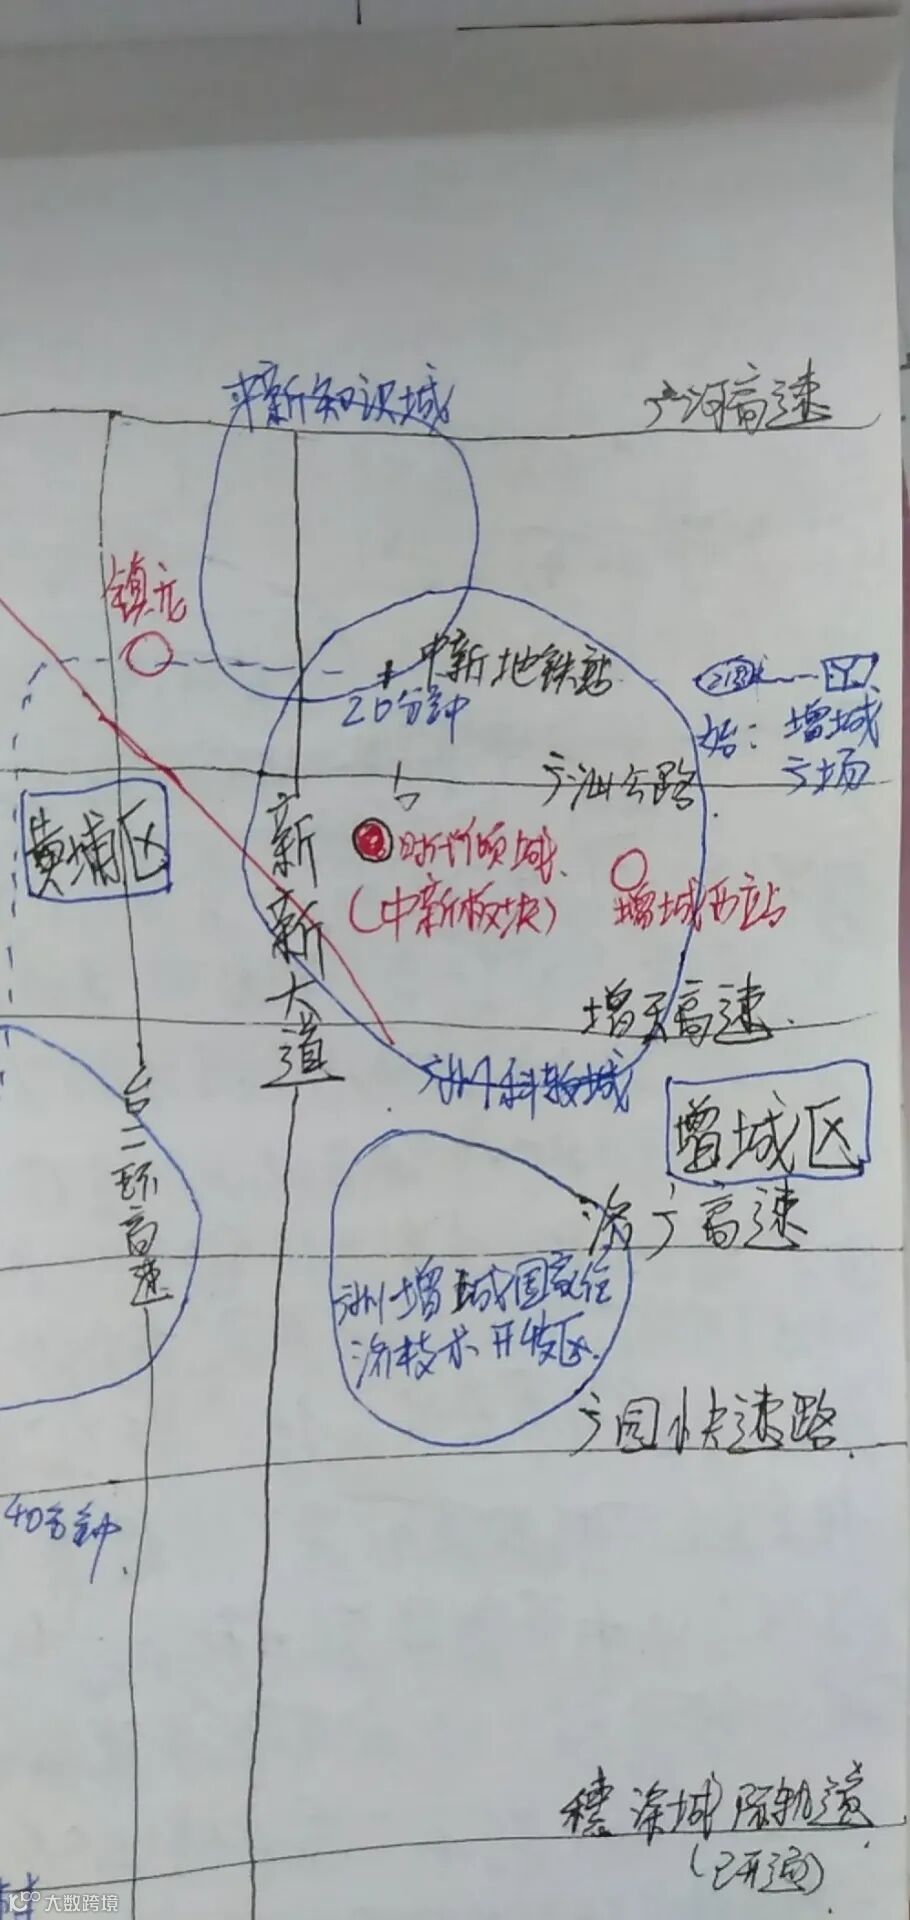 中新知识城
广河高速
镇龙
中新地铁站
20分钟
21号
始：增城
广场
广汕公路
黄埔区
新新大道
时代倾城
（中新板块）
增城西站
增天高速
广州科教城
增城区
济广高速
北二环高速
广州增城国家经
济技术开发区
广园快速路
40分钟
穗深城际轨道
（已开通）
大数跨境